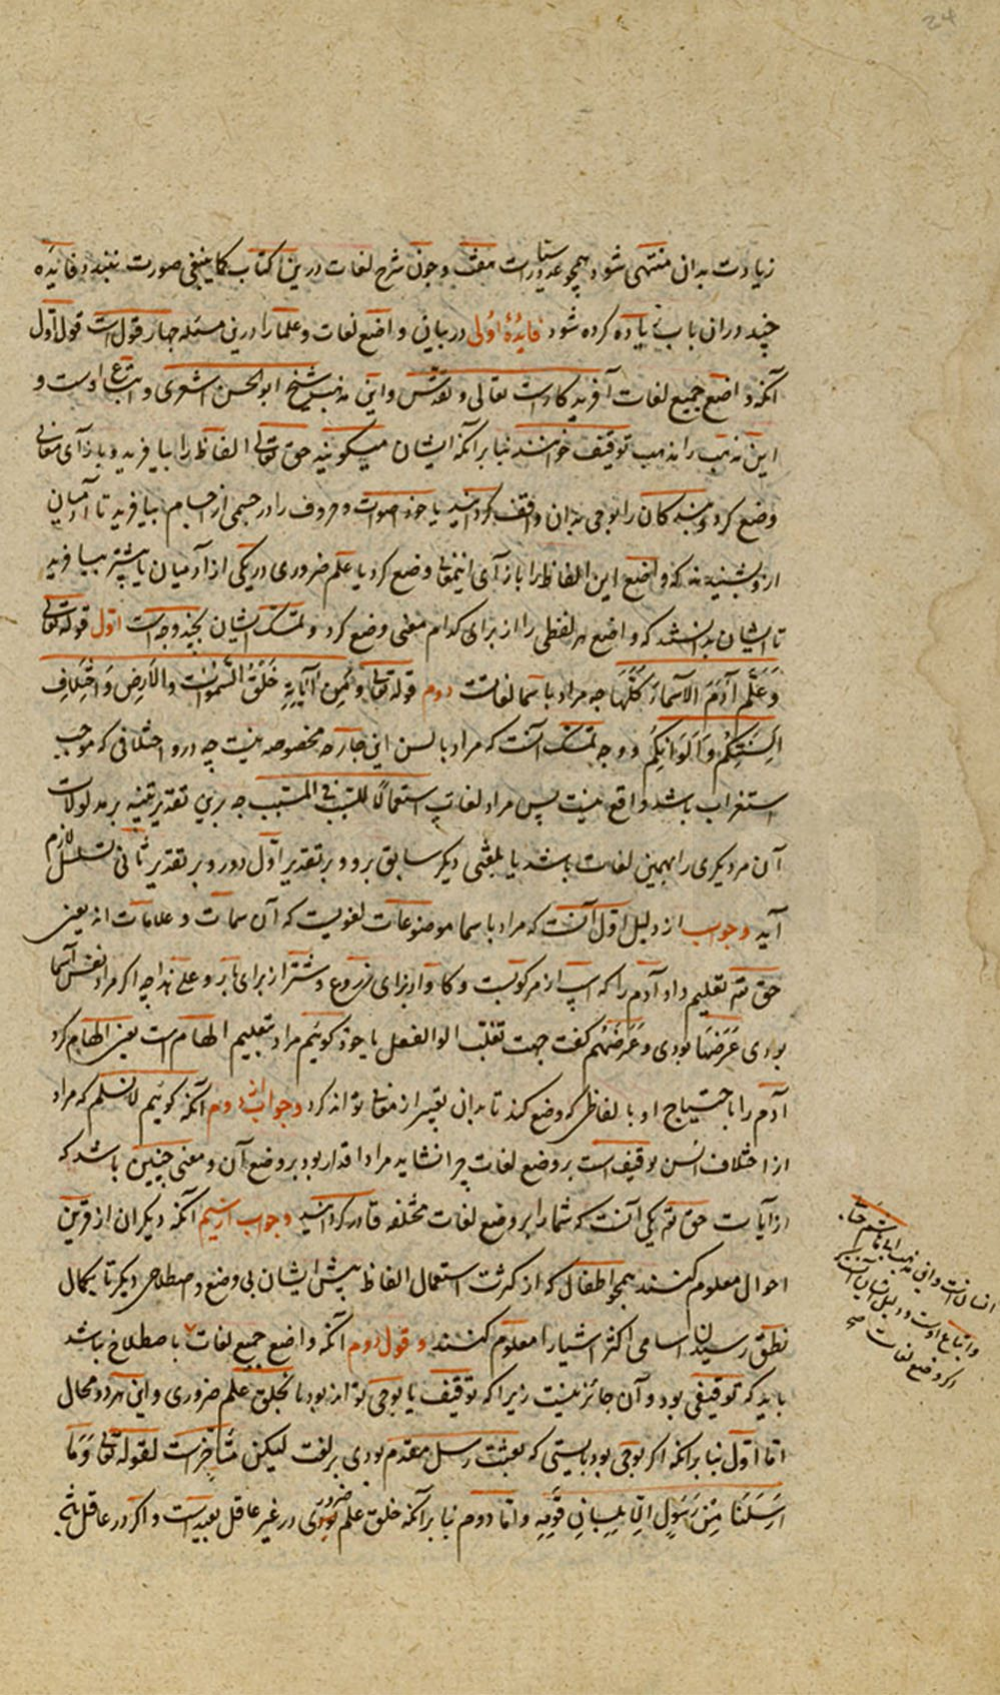 34
زیادت بدان منتهی شود همچو عذو راست معقب و چون شرح لغات درین کتاب کما ینبغی صورت نبندد فایده
چند دران باب یاده کرده شود فایدهٔ اولی در بیان واضع لغات و علما را درین مسئله چهار قول است قول اول
آنکه واضع جمیع لغات آفریدکارست تعالی و تقدس و این مذهب شیخ ابوالحسن اشعری و اتباع اوست و
این مذهب را مذهب توقیف خوانند بنابر آنکه ایشان میگویند حق تعالی الفاظ را بیافرید و بازآی معانی
وضع کرد و بندکان را بوحی بدان واقف کردانید یا خود اصوات و حروف را در جسمی از اجسام بیافرید تا آدمیان
ازو بشنیدند که واضع این الفاظ را بازآی این معانی وضع کرد یا علم ضروری در یکی از آدمیان یا بیشتر بیافرید
تا ایشان بدانستند که واضع هر لفظی را از برای کدام معنی وضع کرد و تمسک ایشان بچند وجه است اول قوله تعالی
وَعَلَّمَ آدَمَ الاَسْمَاءَ كُلَّهَا چه مراد باسما لغاتست دوم قوله تعالی وَمِنْ آيَاتِهِ خَلْقُ السَّمَوَاتِ وَالاَرْضِ وَاخْتِلَافُ
اَلْسِنَتِكُمْ وَاَلْوَانِكُمْ و وجه تمسک آنست که مراد بالسن این جارحه مخصوصه نیست چه درو اختلافی که موجب
استغراب باشد واقع نیست پس مراد لغات استعمالا للسبب فی المسبب چه برین تقدیر تنبیه بر مدلولات
آن مر دیکری را بهمین لغات باشد یا بلغتی دیکر سابق برو و بر تقدیر اول دور و بر تقدیر ثانی تسلسل لازم
آید و جواب از دلیل اول آنست که مراد باسما موضوعات لغویست که آن سمات و علامات اند یعنی
حق تعالی تعلیم داد آدم را که اسپ از مرکوبست و کاو از برای زرع و شتر از برای بار و علی هذا چه اکر مراد نفس اسما
بودی عَرَضَهَا بودی و عَرَضَهُمْ کفت جهت تغلیب الوالعقل یا خود کوئیم مراد بتعلیم الهام است یعنی الهام کرد
آدم را باحتیاج او بالفاظی که وضع کند تا بدان تعبیر از معانی تواند کرد و جواب از دوم آنکه کوئیم لانسلم که مراد
از اختلاف السن توقیف است بر وضع لغات چرا نشاید مراد اقدار بود بر وضع آن و معنی چنین باشد که
از آیات حق تعالی یکی آنست که شما را بر وضع لغات مختلفه قادر کردانید و جواب از سیم آنکه دیکران از قرین
احوال معلوم کنند همچو اطفال که از کثرت استعمال الفاظ پیش ایشان بی وضع و اصطلاحی دیکر تا بکمال
نطق رسیدن اسامی اکثر اشیا را معلوم کنند و قول دوم آنکه واضع جمیع لغات باصطلاح باشد
باید که توقیفی بود و آن جائز نیست زیرا که توقیف یا بوحی تواند بود یا بخلق علم ضروری و این هر دو محال
اما اول بنابر آنکه اکر بوحی بود بایستی که بعثت رسل مقدم بودی بر لغت لیکن متاخرست لقوله تعالی وَمَا
اَرْسَلْنَا مِنْ رَسُولٍ اِلَّا بِلِسَانِ قَوْمِهِ و اما دوم بنابر آنکه خلق علم ضروری در غیر عاقل بعیدست و اکر در عاقل
انسانست و این مذهب ابی هاشم
و اتباع اوست و دلیل ایشان آنست
اکر وضع لغات صح